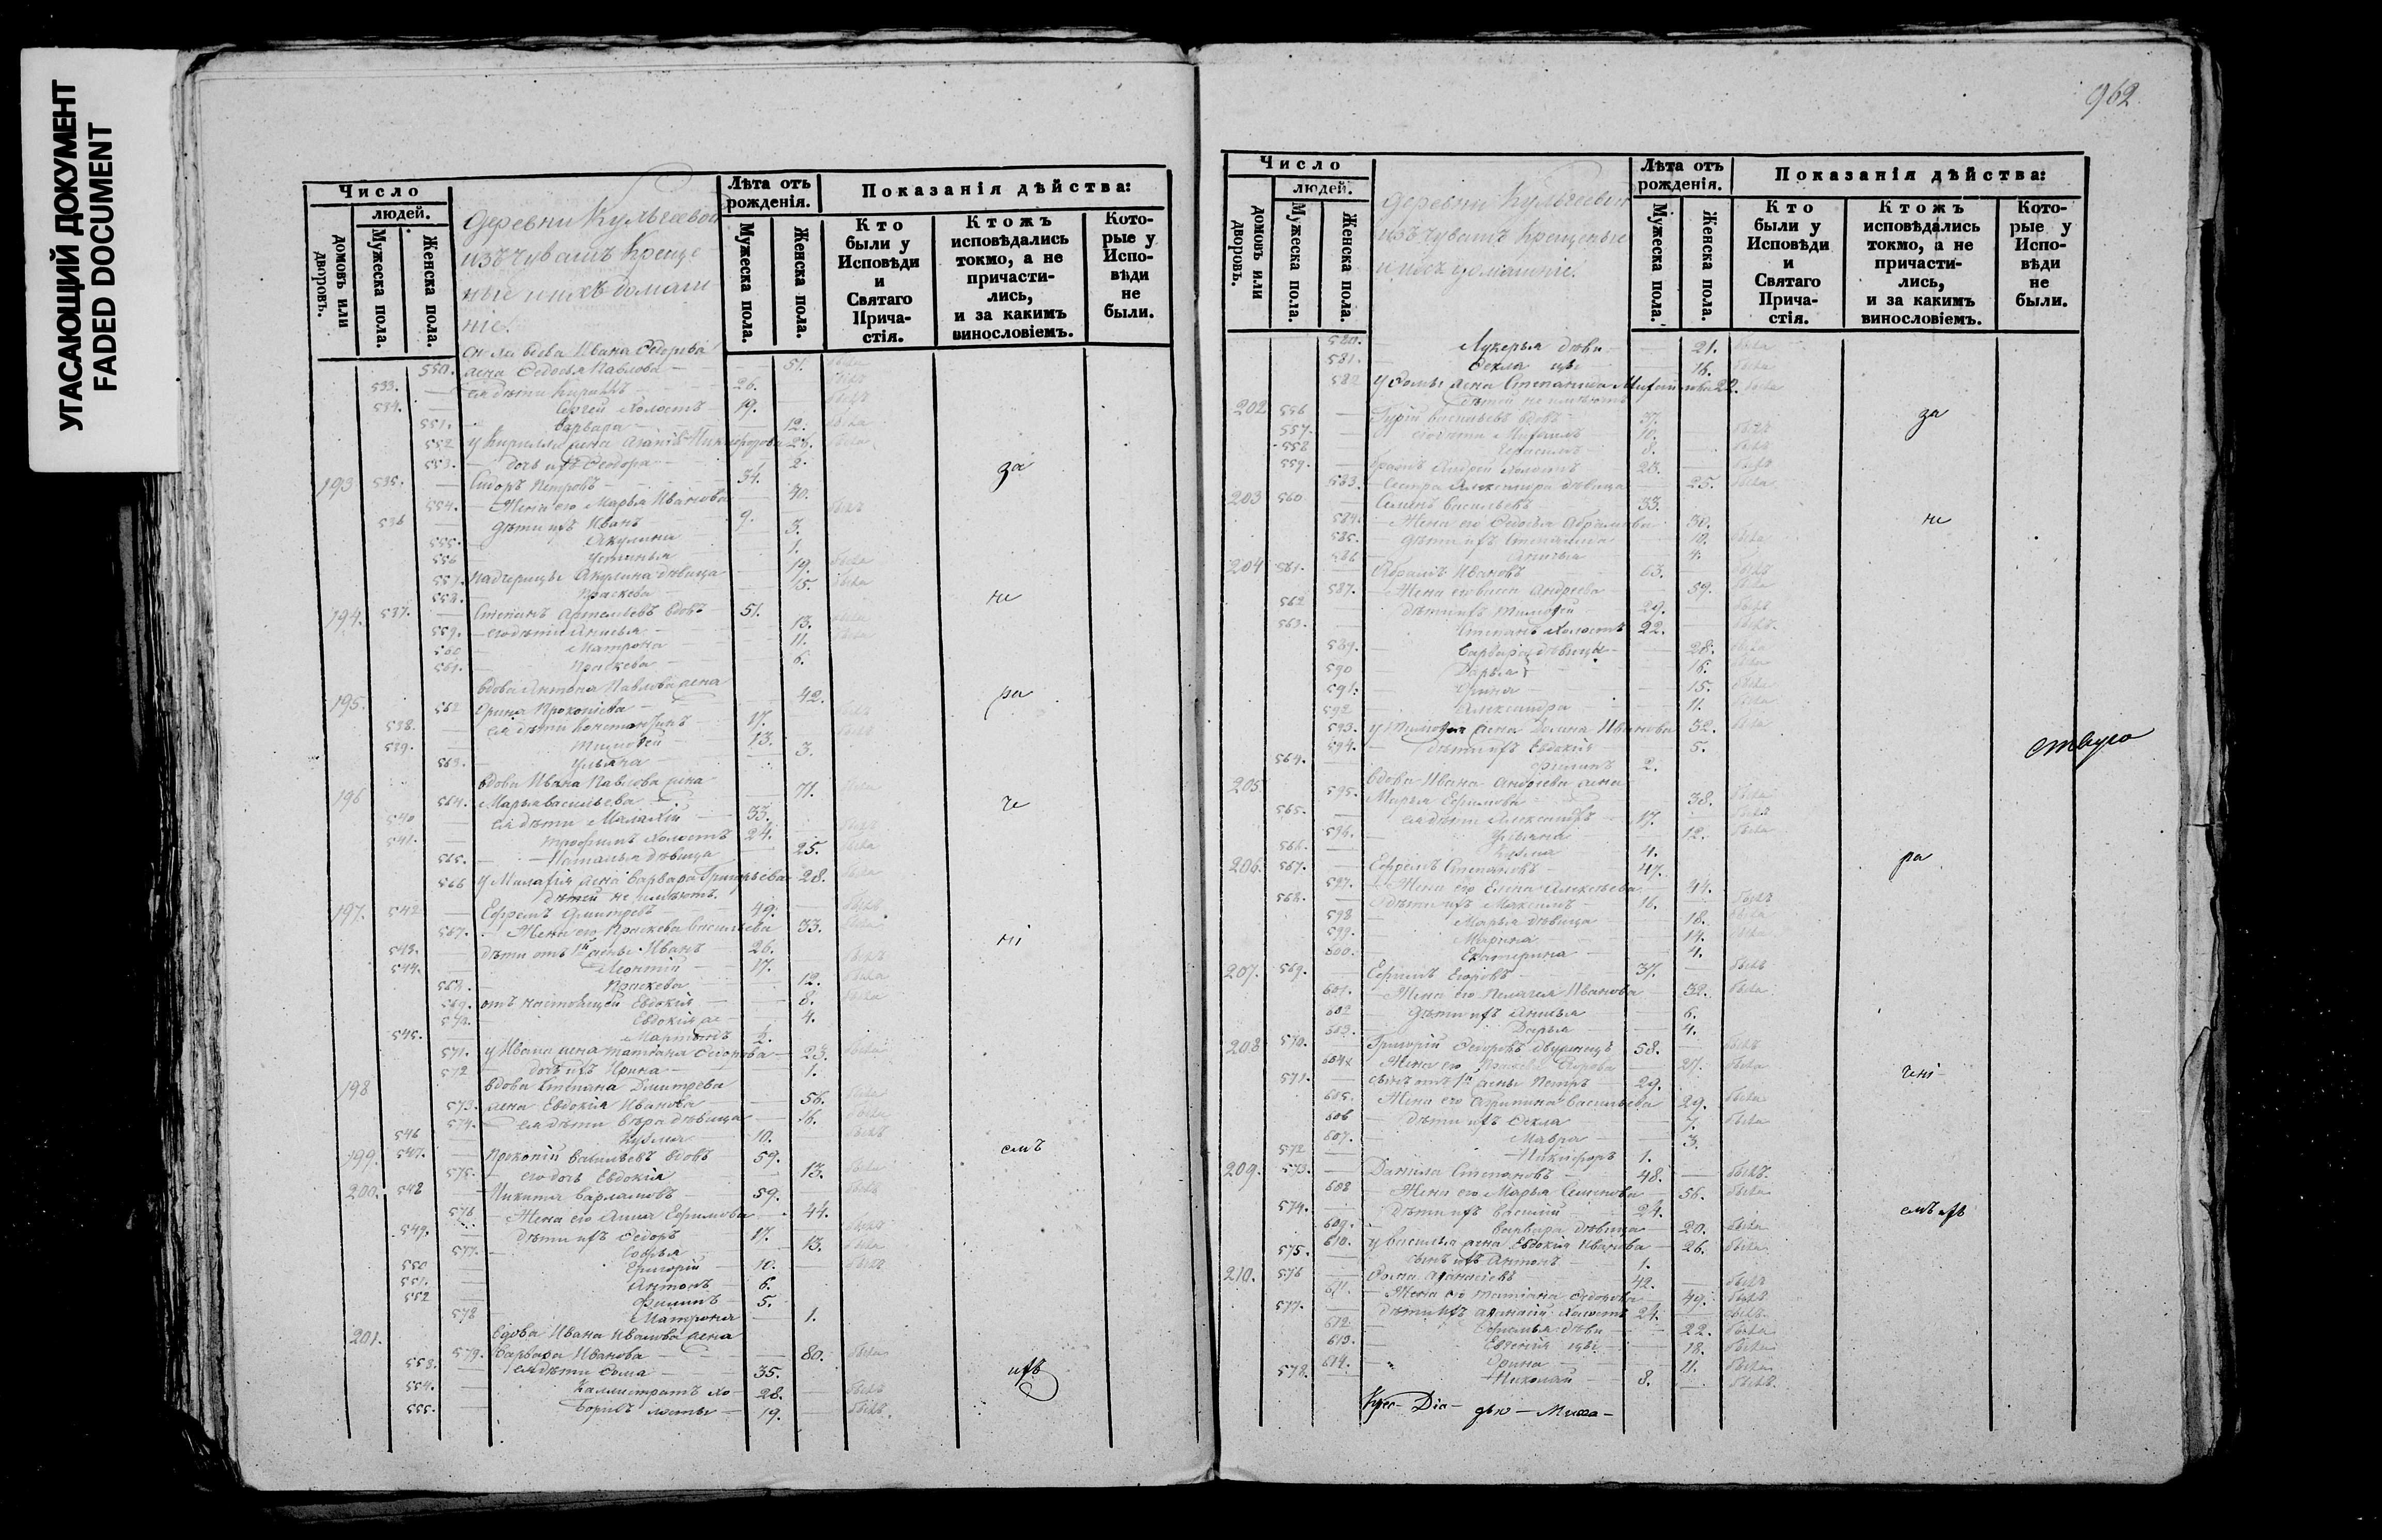 УГАСАЮЩИЙ ДОКУМЕНТ
FADED DOCUMENT
Число
людей.
домовъ или дворовъ.
Мужеска пола.
Женска пола.
деревни Кульгеевой
изъ чувашъ Креще
ные и ихъ домаш
ніе.
Лѣта отъ рожденія.
Мужеска пола.
Женска пола.
Показанія дѣйства:
Кто были у Исповѣди и Святаго Прича-стія.
Ктожъ исповѣдались токмо, а не причасти-лись, и за какимъ винословіемъ.
Кото-рые у Испо-вѣди не были.
Ивана Федорова
550. жена Федосья Павлова 51. была
533. ея дѣти Кирилъ 26. былъ
534. Сергей холостъ 19. былъ
551. Варвара 12. была
552 у Кирилла жена Никифорова 28. была
553. дочь ихъ Феодора 2.
193 535. Сидоръ Петровъ 34.
за
554. Жена его Марья Иванова 40.
536 дѣти ихъ Иванъ 9. былъ
555. Акулина 3.
556 Устинья 1.
557. Падчерицы Акулина дѣвица 19. была
558. Праскева 15. была
194. 537. Степанъ Артемьевъ вдовъ 51.
не
559. его дѣти Анисья 13. была
560 Матрона 11. была
561. Праскева 6.
195. вдова Антона Павлова жена
562 Орина Прокопіева 42.
ра
538. ея дѣти Константинъ 17. былъ
539. Тимофей 13. былъ
563. Ульяна 3.
196 вдова Ивана Павлова жена
564. Марья Васильева 71. была
че
540 ея дѣти Малахій 33.
541. Трофимъ холостъ 24. былъ
565. Наталья дѣвица 25. была
566 у Малахія жена Варвара Григорьева 28. была
дѣтей не имѣютъ.
197. 542 Ефремъ Дмитревъ 49. былъ
567. Жена его Праскева Васильева 33. была
543. дѣти отъ 1й жены Иванъ 26.
ні
544. Леонтій 17. былъ
568. Праскева 12. была
569. отъ настоящей Евдокія 8. была
570. Евдокія же 4.
545. Мартынъ 2.
571. у Ивана жена Татіана Федорова 23. была
572 дочь ихъ Ирина 1.
198 вдова Степана Дмитрева
573. жена Евдокія Иванова 56. была
574. ея дѣти Вѣра дѣвица 16. была
546 Кузма 10. былъ
199. 547. Прокопій Васильевъ вдовъ 59.
емъ
575. его дочь Евдокія 13. была
200. 548 Никита Варламовъ 59. былъ
576 Жена его Анна Ефимова 44.
549. дѣти ихъ Федоръ 17. былъ
577. Софья 13. была
550 Григорій 10. былъ
551. Антонъ 6.
552 Филипъ 5.
578 Матрона 1.
201. вдова Ивана Иванова жена
579. Варвара Иванова 80. была
553. ея дѣти Фома 35.
ихъ
554. Каллистратъ хо 28. былъ
555. Борисъ лосты 19. былъ
962
Число
людей.
домовъ или дворовъ.
Мужеска пола.
Женска пола.
деревни Кульгеевой
изъ чувашъ Крещеные
и ихъ домашніе.
Лѣта отъ рожденія.
Мужеска пола.
Женска пола.
Показанія дѣйства:
Кто были у Исповѣди и Святаго Прича-стія.
Ктожъ исповѣдались токмо, а не причасти-лись, и за какимъ винословіемъ.
Кото-рые у Испо-вѣди не были.
580. Лукерья дѣви 21. была
581. Фекла цы 16. была
582 у Фомы жена Степанида 22. была
дѣтей не имѣютъ
202 556 Гурій Васильевъ вдовъ 37.
за
557. его дѣти Михаилъ 10. былъ
558 Герасимъ 8. былъ
559. братъ Андрей холостъ 23. былъ
583. Сестра Александра дѣвица 25. была
203 560 Семенъ Васильевъ 33.
не
584. Жена его Федосья Абрамова 30.
585. дѣти ихъ Степанида 10. была
586 Анисья 4.
204 561. Абрамъ Ивановъ 63. былъ
587. Жена его Андреева 59. была
562 дѣти ихъ Тимофей 29. былъ
563. Степанъ холостъ 22. былъ
589. Варвара дѣвицы 28. была
590 Дарья 16. была
591. Орина 15. была
592 Александра 11. была
593. у Тимофея жена Иванова 32. была
594. дѣти ихъ Евдокія 5.
564. Филипъ 2.
ствую
205 вдова Ивана Андреева жена
595. Марья Ефимова 38. была
565. ея дѣти Александръ 17. былъ
596. Ульяна 12. была
566. Кузма 4.
206. 567. Ефремъ Степановъ 47.
ра
597. Жена его Елена Алексѣева 44.
568. дѣти ихъ Максимъ 16. былъ
598 Марья дѣвица 18. была
599. Марина 14. была
600. Екатерина 4.
207. 569. Ефимъ Егоровъ 37. былъ
601. Жена его Пелагея Иванова 32. была
602 дѣти ихъ Анисья 6.
603. Дарья 4.
208 570. Григорій Федоровъ двуженецъ 58. былъ
604 Жена его Праскева 27. была
чні
571. сынъ отъ 1й жены Петръ 29.
605. Жена его Агрипина Васильева 29. была
606 дѣти ихъ Фекла 7. была
607. Мавра 3.
572 Никифоръ 1.
209. 573. Данила Степановъ 48. былъ
608 Жена его Марья Семенова 56. была
574. дѣти ихъ Василій 24.
емъ ихъ
609. Варвара дѣвица 20. была
610. у Василья жена Евдокія Иванова 26. была
575. сынъ ихъ Антонъ 1.
210. 576 Фома Афанасіевъ 42. былъ
611. Жена его Татіана Федорова 49. была
577. дѣти ихъ Афанасій холостъ 24. былъ
612 Офимья дѣви 22. была
613. Евгенія цы 18. была
614. Орина 11. была
578. Николай 8. былъ